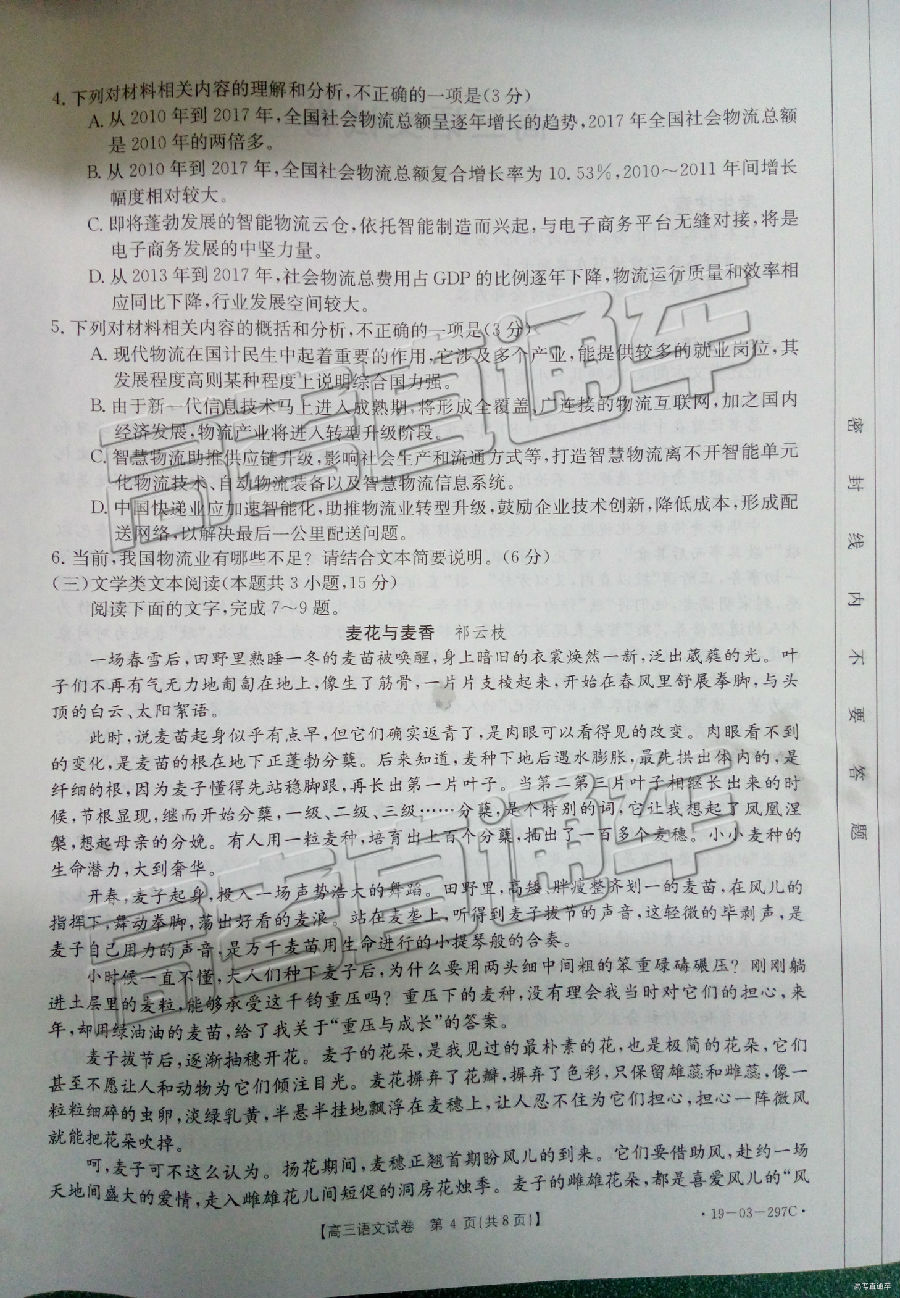 4. 下列对材料相关内容的理解和分析,不正确的一项是(3分)
A. 从2010年到2017年,全国社会物流总额呈逐年增长的趋势,2017年全国社会物流总额
是2010年的两倍多。
B. 从2010年到2017年,全国社会物流总额复合增长率为10.53%,2010～2011年间增长
幅度相对较大。
C. 即将蓬勃发展的智能物流云仓,依托智能制造而兴起,与电子商务平台无缝对接,将是
电子商务发展的中坚力量。
D. 从2013年到2017年,社会物流总费用占GDP的比例逐年下降,物流运行质量和效率相
应同比下降,行业发展空间较大。
5. 下列对材料相关内容的概括和分析,不正确的一项是(3分)
A. 现代物流在国计民生中起着重要的作用,它涉及多个产业,能提供较多的就业岗位,其
发展程度高则某种程度上说明综合国力强。
B. 由于新一代信息技术马上进入成熟期,将形成全覆盖、广连接的物流互联网,加之国内
经济发展,物流产业将进入转型升级阶段。
C. 智慧物流助推供应链升级,影响社会生产和流通方式等,打造智慧物流离不开智能单元
化物流技术、自动物流装备以及智慧物流信息系统。
D. 中国快递业应加速智能化,助推物流业转型升级,鼓励企业技术创新,降低成本,形成配
送网络,以解决最后一公里配送问题。
6. 当前,我国物流业有哪些不足?请结合文本简要说明。(6分)
(三)文学类文本阅读(本题共3小题,15分)
阅读下面的文字,完成7～9题。
麦花与麦香 祁云枝
一场春雪后,田野里熟睡一冬的麦苗被唤醒,身上暗旧的衣裳焕然一新,泛出葳蕤的光。叶
子们不再有气无力地匍匐在地上,像生了筋骨,一片片支棱起来,开始在春风里舒展拳脚,与头
顶的白云、太阳絮语。
此时,说麦苗起身似乎有点早,但它们确实返青了,是肉眼可以看得见的改变。肉眼看不到
的变化,是麦苗的根在地下正蓬勃分蘖。后来知道,麦种下地后遇水膨胀,最先拱出体内的,是
纤细的根,因为麦子懂得先站稳脚跟,再长出第一片叶子。当第二第三片叶子相继长出来的时
候,节根显现,继而开始分蘖,一级、二级、三级……分蘖,是个特别的词,它让我想起了凤凰涅
槃,想起母亲的分娩。有人用一粒麦种,培育出上百个分蘖,抽出了一百多个麦穗。小小麦种的
生命潜力,大到奢华。
开春,麦子起身,投入一场声势浩大的舞蹈。田野里,高矮、胖瘦整齐划一的麦苗,在风儿的
指挥下,舞动拳脚,荡出好看的麦浪。站在麦垄上,听得到麦子拔节的声音,这轻微的毕剥声,是
麦子自己用力的声音,是万千麦苗用生命进行的小提琴般的合奏。
小时候一直不懂,大人们种下麦子后,为什么要用两头细中间粗的笨重碌碡碾压?刚刚躺
进土层里的麦粒,能够承受这千钧重压吗?重压下的麦种,没有理会我当时对它们的担心,来
年,却用绿油油的麦苗,给了我关于“重压与成长”的答案。
麦子拔节后,逐渐抽穗开花。麦子的花朵,是我见过的最朴素的花,也是极简的花朵,它们
甚至不愿让人和动物为它们倾注目光。麦花摒弃了花瓣,摒弃了色彩,只保留雄蕊和雌蕊,像一
粒粒细碎的虫卵,淡绿乳黄,半悬半挂地飘浮在麦穗上,让人忍不住为它们担心,担心一阵微风
就能把花朵吹掉。
呵,麦子可不这么认为。扬花期间,麦穗正翘首期盼风儿的到来。它们要借助风,赴约一场
天地间盛大的爱情,走入雌雄花儿间短促的洞房花烛季。麦子的雌雄花朵,都是喜爱风儿的“风
【高三语文试卷 第4页(共8页)】
·19-03-297C·
密封线内不要答题
高考直通车
高考直通车
高考直通车